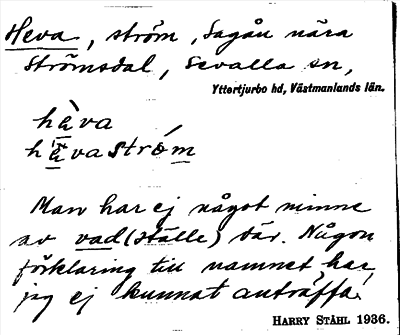 Heva, ström, Sagån nära
Strömsdal, Sevalla sn,
Yttertjurbo hd, Västmanlands län.
hàva
hävaström
Man har ej något minne
av vad (ställe) där. Någon
förklaring till namnet har
jag ej kunnat anträffa.
HARRY STÅHL 1936.